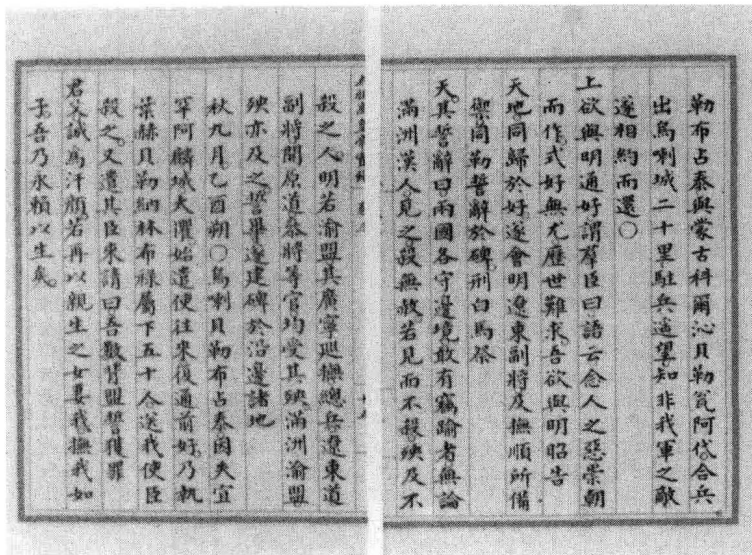 勒布占泰與蒙古科爾沁貝勒瓮阿岱合兵
出烏喇城二十里駐兵遥望知非我軍之敵
遂相約而還〇
上欲與明通好謂羣臣曰語云念人之惡崇朝
而作式好無尤歷世難求吾欲與明昭告
天地同歸於好遂會明遼東副將及撫順所備
禦同勒誓辭於碑刑白馬祭
天其誓辭曰兩國各守邊境敢有竊踰者無論
滿洲漢人見之殺無赦若見而不殺殃及不
殺之人明若渝盟其廣寧廵撫總兵遼東道
副將開原道叅將等官均受其殃滿洲渝盟
殃亦及之誓畢遂建碑於沿邊諸地
秋九月乙酉朔〇烏喇貝勒布占泰因失宜
罕阿麟城大懼始遣使往來復通前好乃執
葉赫貝勒納林布祿屬下五十人送我使臣
殺之又遣其臣來請曰吾數背盟誓獲罪
君父誠爲汗顏若再以親生之女妻我撫我如
子吾乃永賴以生矣